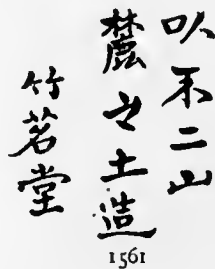 以不二山
麓之土造
竹茗堂
1561